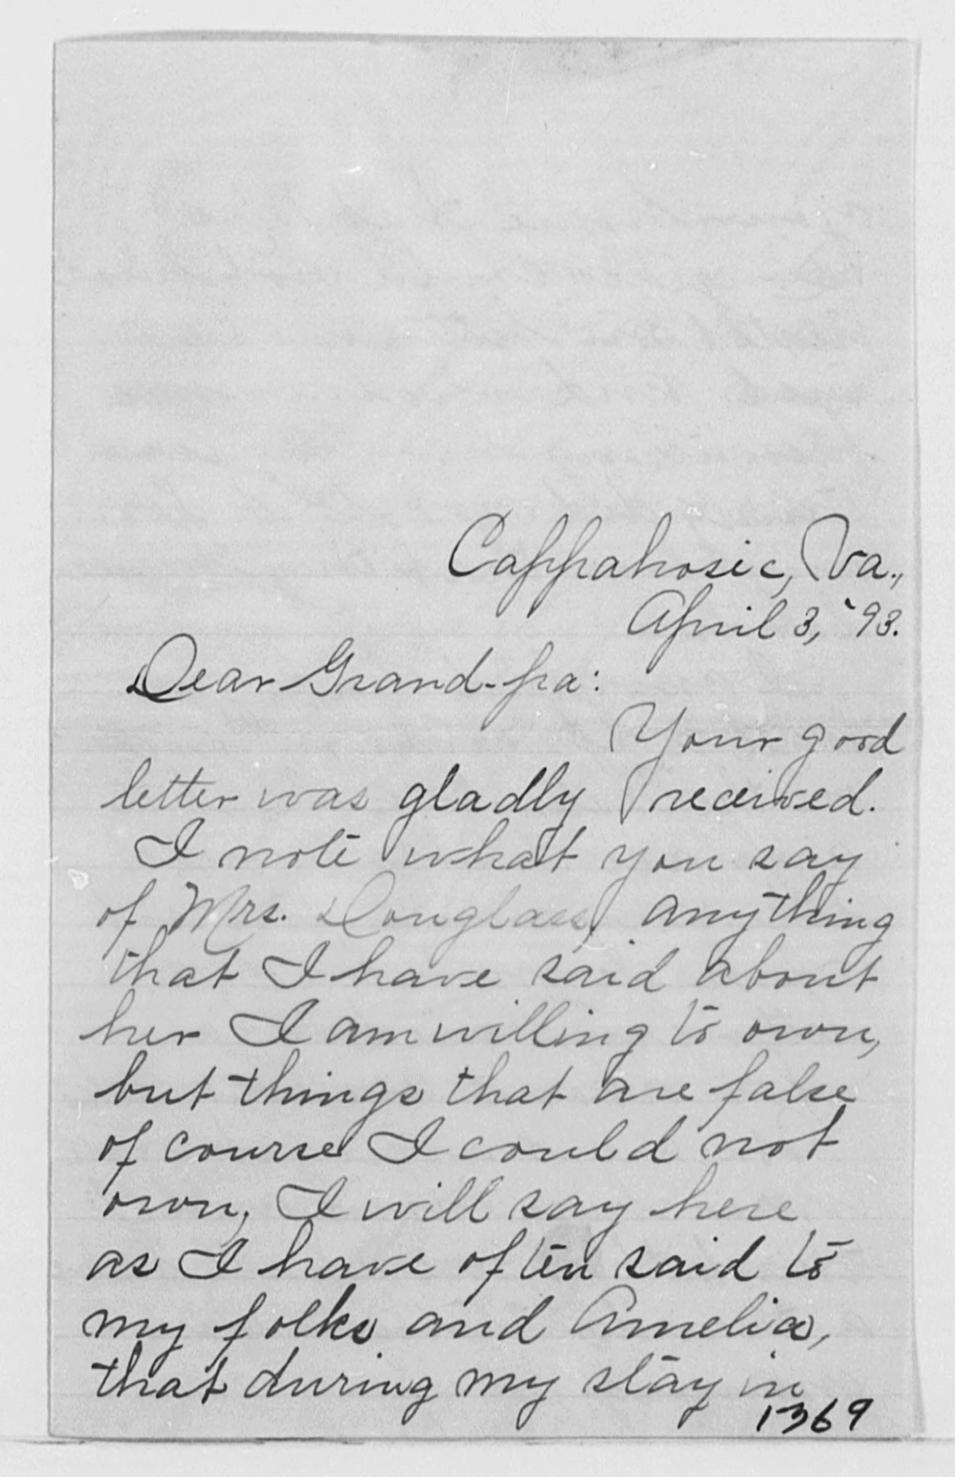 Cappahosic, Va.,
April 3, '93.
Dear Grand-pa:
Your good
letter was gladly received.
I note what you say
of Mrs. Douglass, anything
that I have said about
her I am willing to own,
but things that are false
of course I could not
own, I will say here
as I have often said to
my folks and Amelia,
that during my stay in
1369